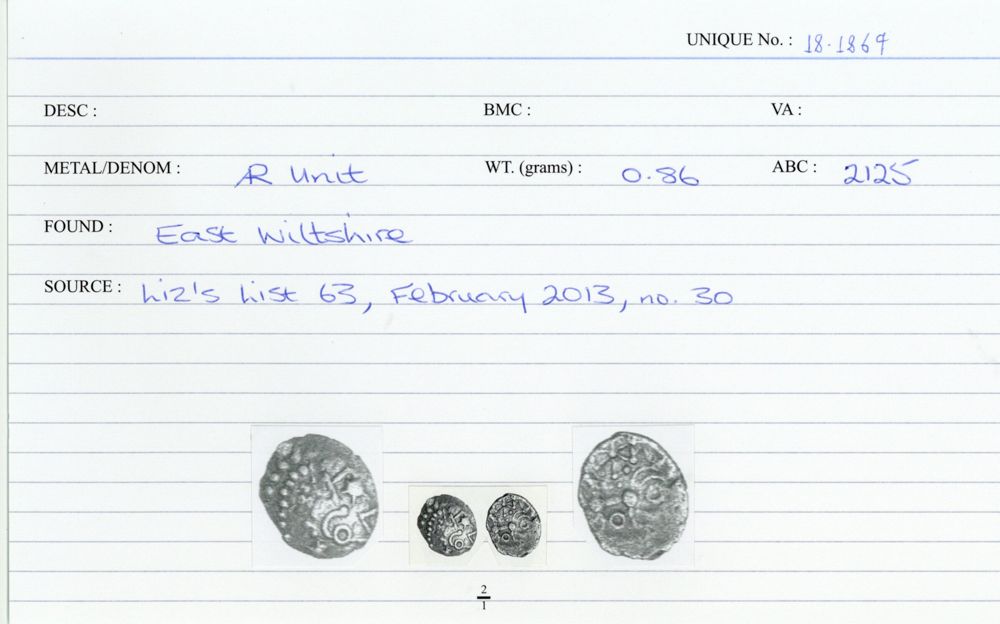 UNIQUE No. : 18.1869
DESC : BMC : VA :
METAL/DENOM : AR Unit WT. (grams) : 0.86 ABC : 2125
FOUND : East Wiltshire
SOURCE : Liz's List 63, February 2013, no. 30
2
1